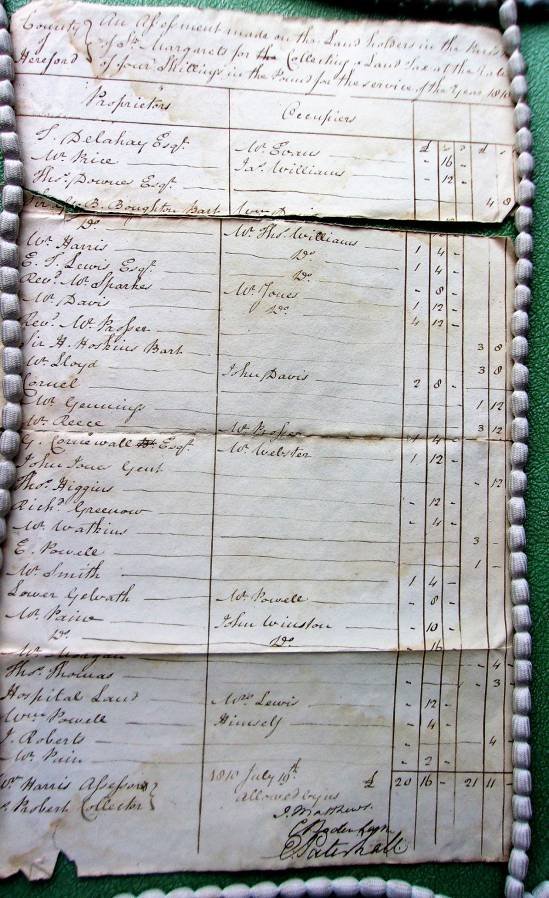 County } An Assessment made on the Land holders in the Parish
of } of St. Margarets for the Collecting a Land Tax at the Rate
Hereford } of four Shillings in the Pound for the service of the Year 1810
Proprietors Occupiers
£ s d £ s
T. Delahay Esqr. Mr. Evans - 16 -
Mr. Price Jas. Williams - 12 -
Thos. Downes Esqr. 4 8
B. Boughton Bart
Do. Mr. Thos. Williams 1 4 -
Mr. Harris Do. 1 4 -
E. T. Lewis Esqr. Do. - 8 -
Revd. Mr. Sparkes Mr. Jones 1 12 -
Mr. Davis Do. 4 12 -
Revd. Mr. Prosser 3 8
Sir H. Hoskins Bart 3 8
Mr. Lloyd John Davis 2 8 -
Cornel 1 12
Mr. Gennings 3 12
Mr. Reece Mr. Prosser 1 4 -
G. Cornewall Esqr. Mr. Webster 1 12 -
John Jones Gent - 12
Thos. Higgins - 12 -
Richd. Greenow - 4 -
Mr. Watkins 3 -
E. Powell 1 -
Mr. Smith 1 4 -
Lower Gelvath Mr. Powell - 8 -
Mr. Paine John Winston - 10 -
Do. Do. - 16 -
Mr. Morgan - 4 -
Thos. Thomas - 3 -
Hospital Land Mrs. Lewis - 12 -
Wm. Powell Himself - 4 -
J. Roberts 4
Mr. Pain - 2 -
Wm. Harris Assessor } 1810 July 10th £ 20 16 - 21 11 -
Probert Collector } Allowed by us
J. Matthews
E. Pateshall